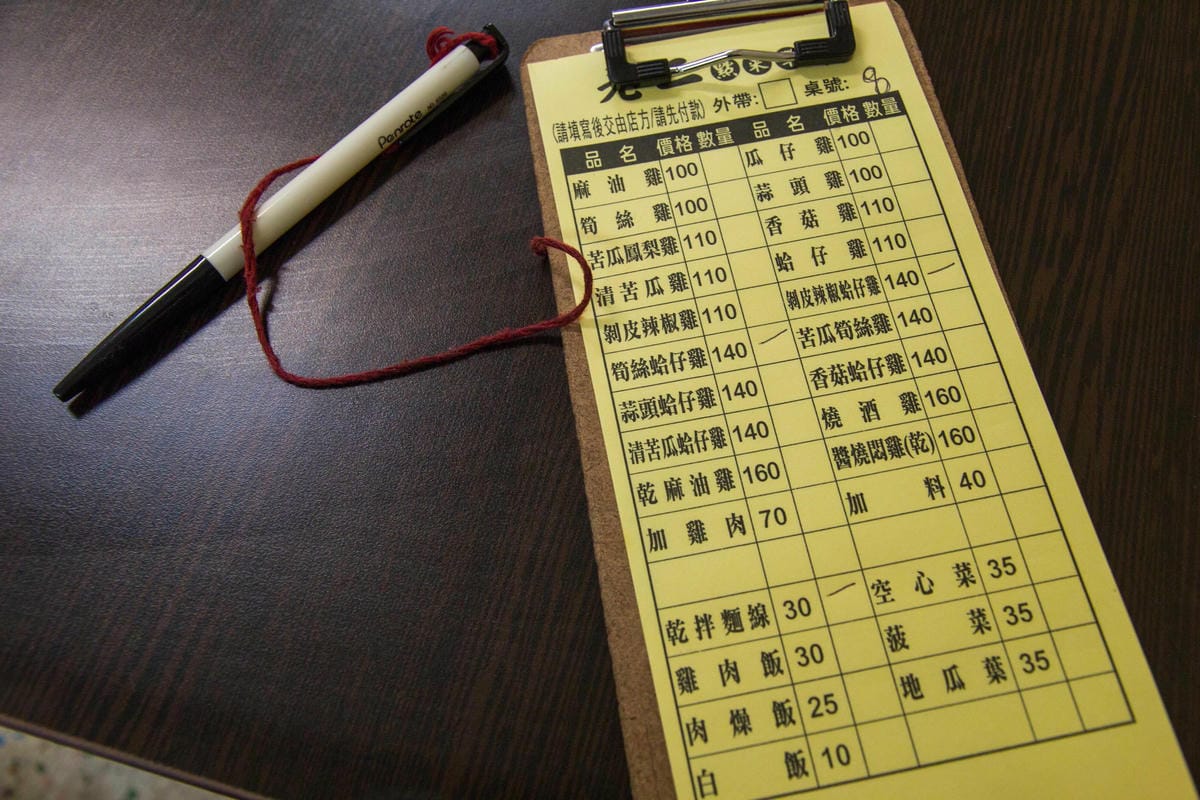 Penrote NO.6506
點菜單
(請填寫後交由店方/請先付款) 外帶: 桌號: 8
品名 價格 數量 品名 價格 數量
麻油雞 100 瓜仔雞 100
筍絲雞 100 蒜頭雞 100
苦瓜鳳梨雞 110 香菇雞 110
清苦瓜雞 110 蛤仔雞 110
剝皮辣椒雞 110 剝皮辣椒蛤仔雞 140 一
筍絲蛤仔雞 140 一 苦瓜筍絲雞 140
蒜頭蛤仔雞 140 香菇蛤仔雞 140
清苦瓜蛤仔雞 140 燒酒雞 160
乾麻油雞 160 醬燒悶雞(乾) 160
加雞肉 70 加料 40
乾拌麵線 30 一 空心菜 35
雞肉飯 30 菠菜 35
肉燥飯 25 地瓜葉 35
白飯 10